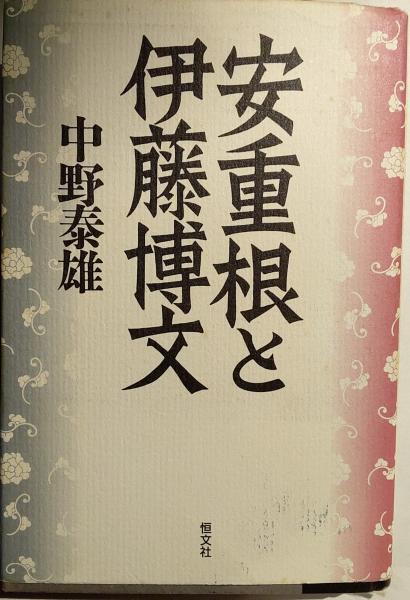 安重根と
伊藤博文
中野泰雄
恒文社